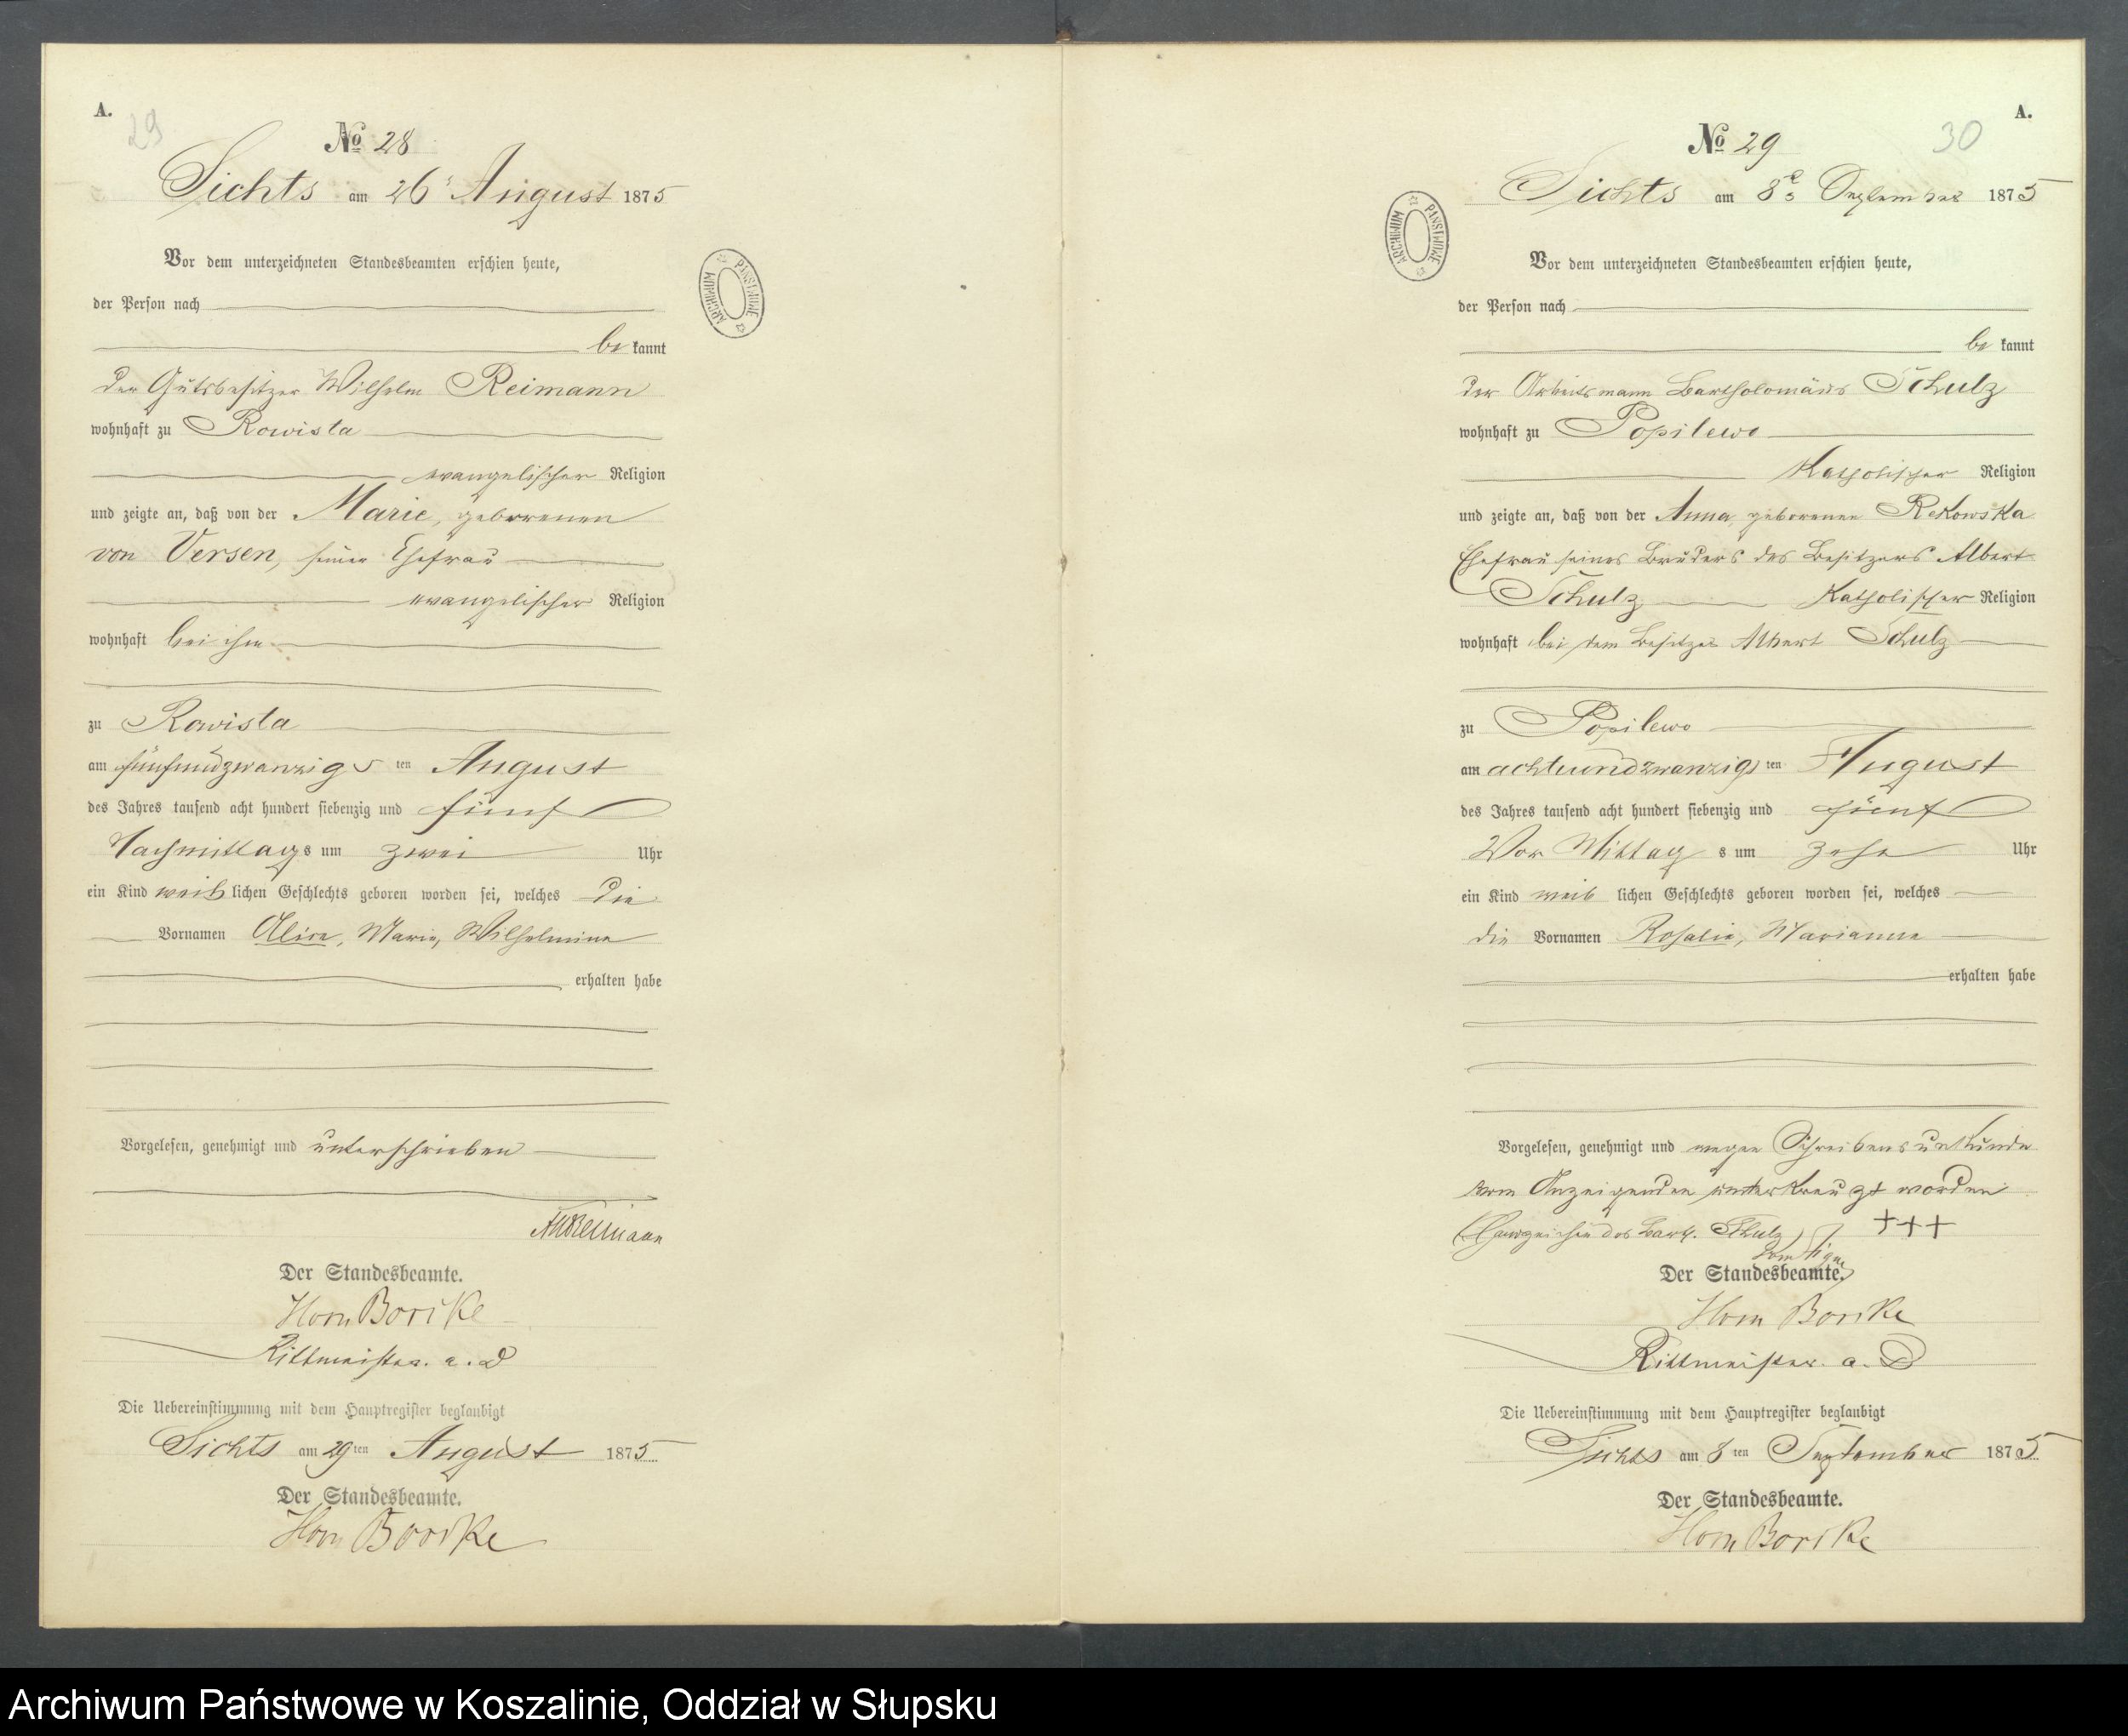 A.
29
No 28
Sichts am 26t August 1875
Vor dem unterzeichneten Standesbeamten erschien heute,
der Person nach
be kannt
der Gutsbesitzer Wilhelm Reimann
wohnhaft zu Rowista
evangelischer Religion
und zeigte an, daß von der Marie, geborenen
von Versen, seiner Ehefrau
evangelischer Religion
wohnhaft bei ihm
zu Rowista
am fünfundzwanzigs ten August
des Jahres tausend acht hundert siebenzig und fünf
Nachmittags um zwei Uhr
ein Kind weib lichen Geschlechts geboren worden sei, welches die
Vornamen Alice, Marie, Wilhelmine
erhalten habe
Vorgelesen, genehmigt und unterschrieben
Reimann
Der Standesbeamte.
Horn Borcke
Rittmeister. a. D
Die Uebereinstimmung mit dem Hauptregister beglaubigt
Sichts am 29 ten August 1875
Der Standesbeamte.
Horn Borcke
ARCHIWUM PAŃSTWOWE
A.
30
No 29
Sichts am 8 September 1875
ARCHIWUM PAŃSTWOWE
Vor dem unterzeichneten Standesbeamten erschien heute,
der Person nach
be kannt
der Arbeitsmann Bartholomäus Schulz
wohnhaft zu Popilewo
Katholischer Religion
und zeigte an, daß von der Anna, geborenen Rekowska
Ehefrau seines Bruders des Besitzers Albert
Schulz Katholischer Religion
wohnhaft bei dem Besitzer Albert Schulz
zu Popilewo
am achtundzwanzigs ten August
des Jahres tausend acht hundert siebenzig und fünf
Vor Mittag s um zehn Uhr
ein Kind weib lichen Geschlechts geboren worden sei, welches
die Vornamen Rosalie, Marianna
erhalten habe
Vorgelesen, genehmigt und wegen Schreibensunkunde
vom Anzeigenden unterkreuzt worden
(Handzeichen des Barth. Schulz) +++
Der Standesbeamte.
Horn Borcke
Rittmeister. a. D
Die Uebereinstimmung mit dem Hauptregister beglaubigt
Sichts am 8 ten September 1875
Der Standesbeamte.
Horn Borcke
Archiwum Państwowe w Koszalinie, Oddział w Słupsku